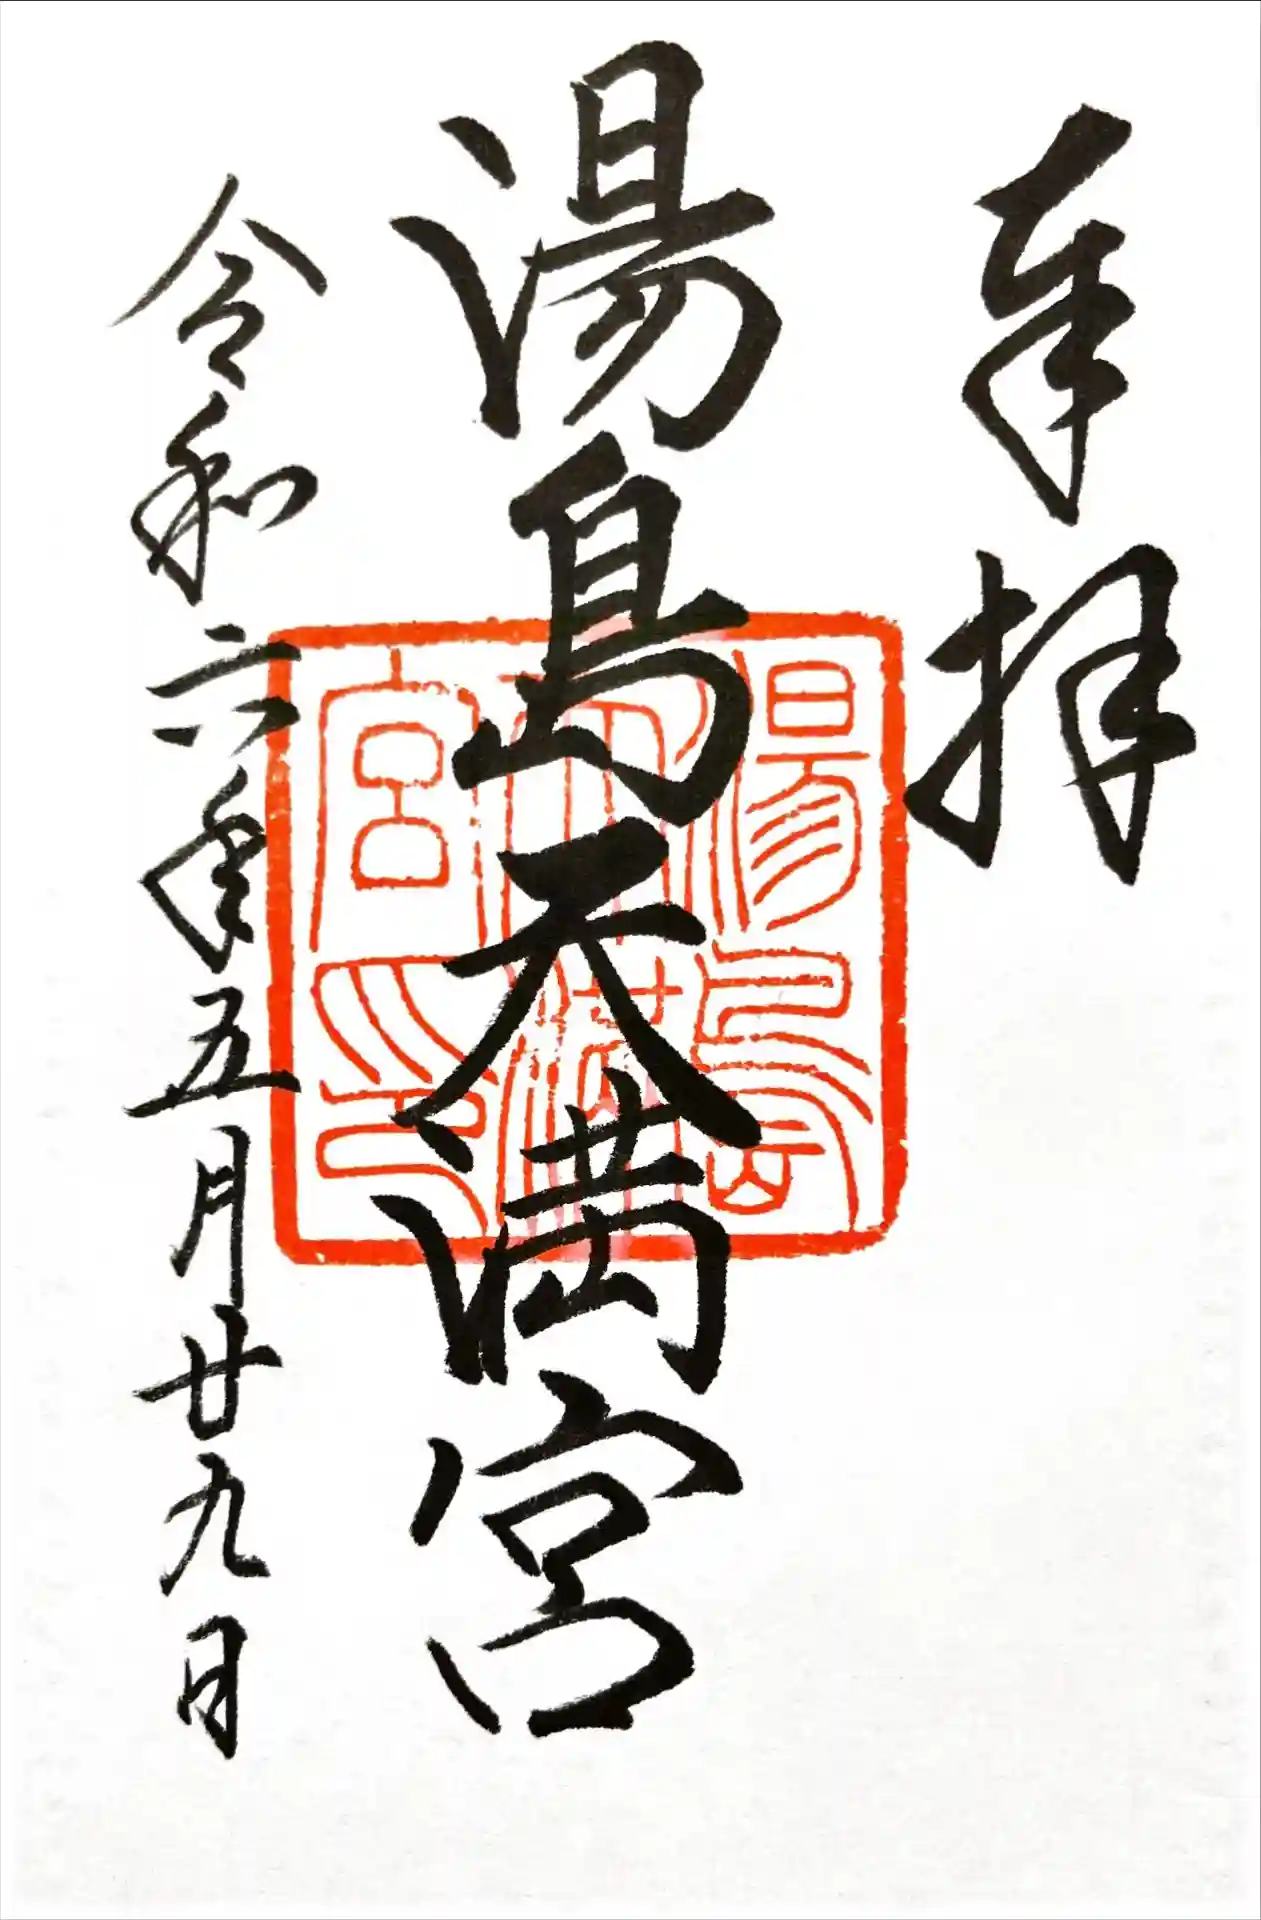 奉拝
湯島天満宮
令和六年五月廿九日
湯島天満宮印